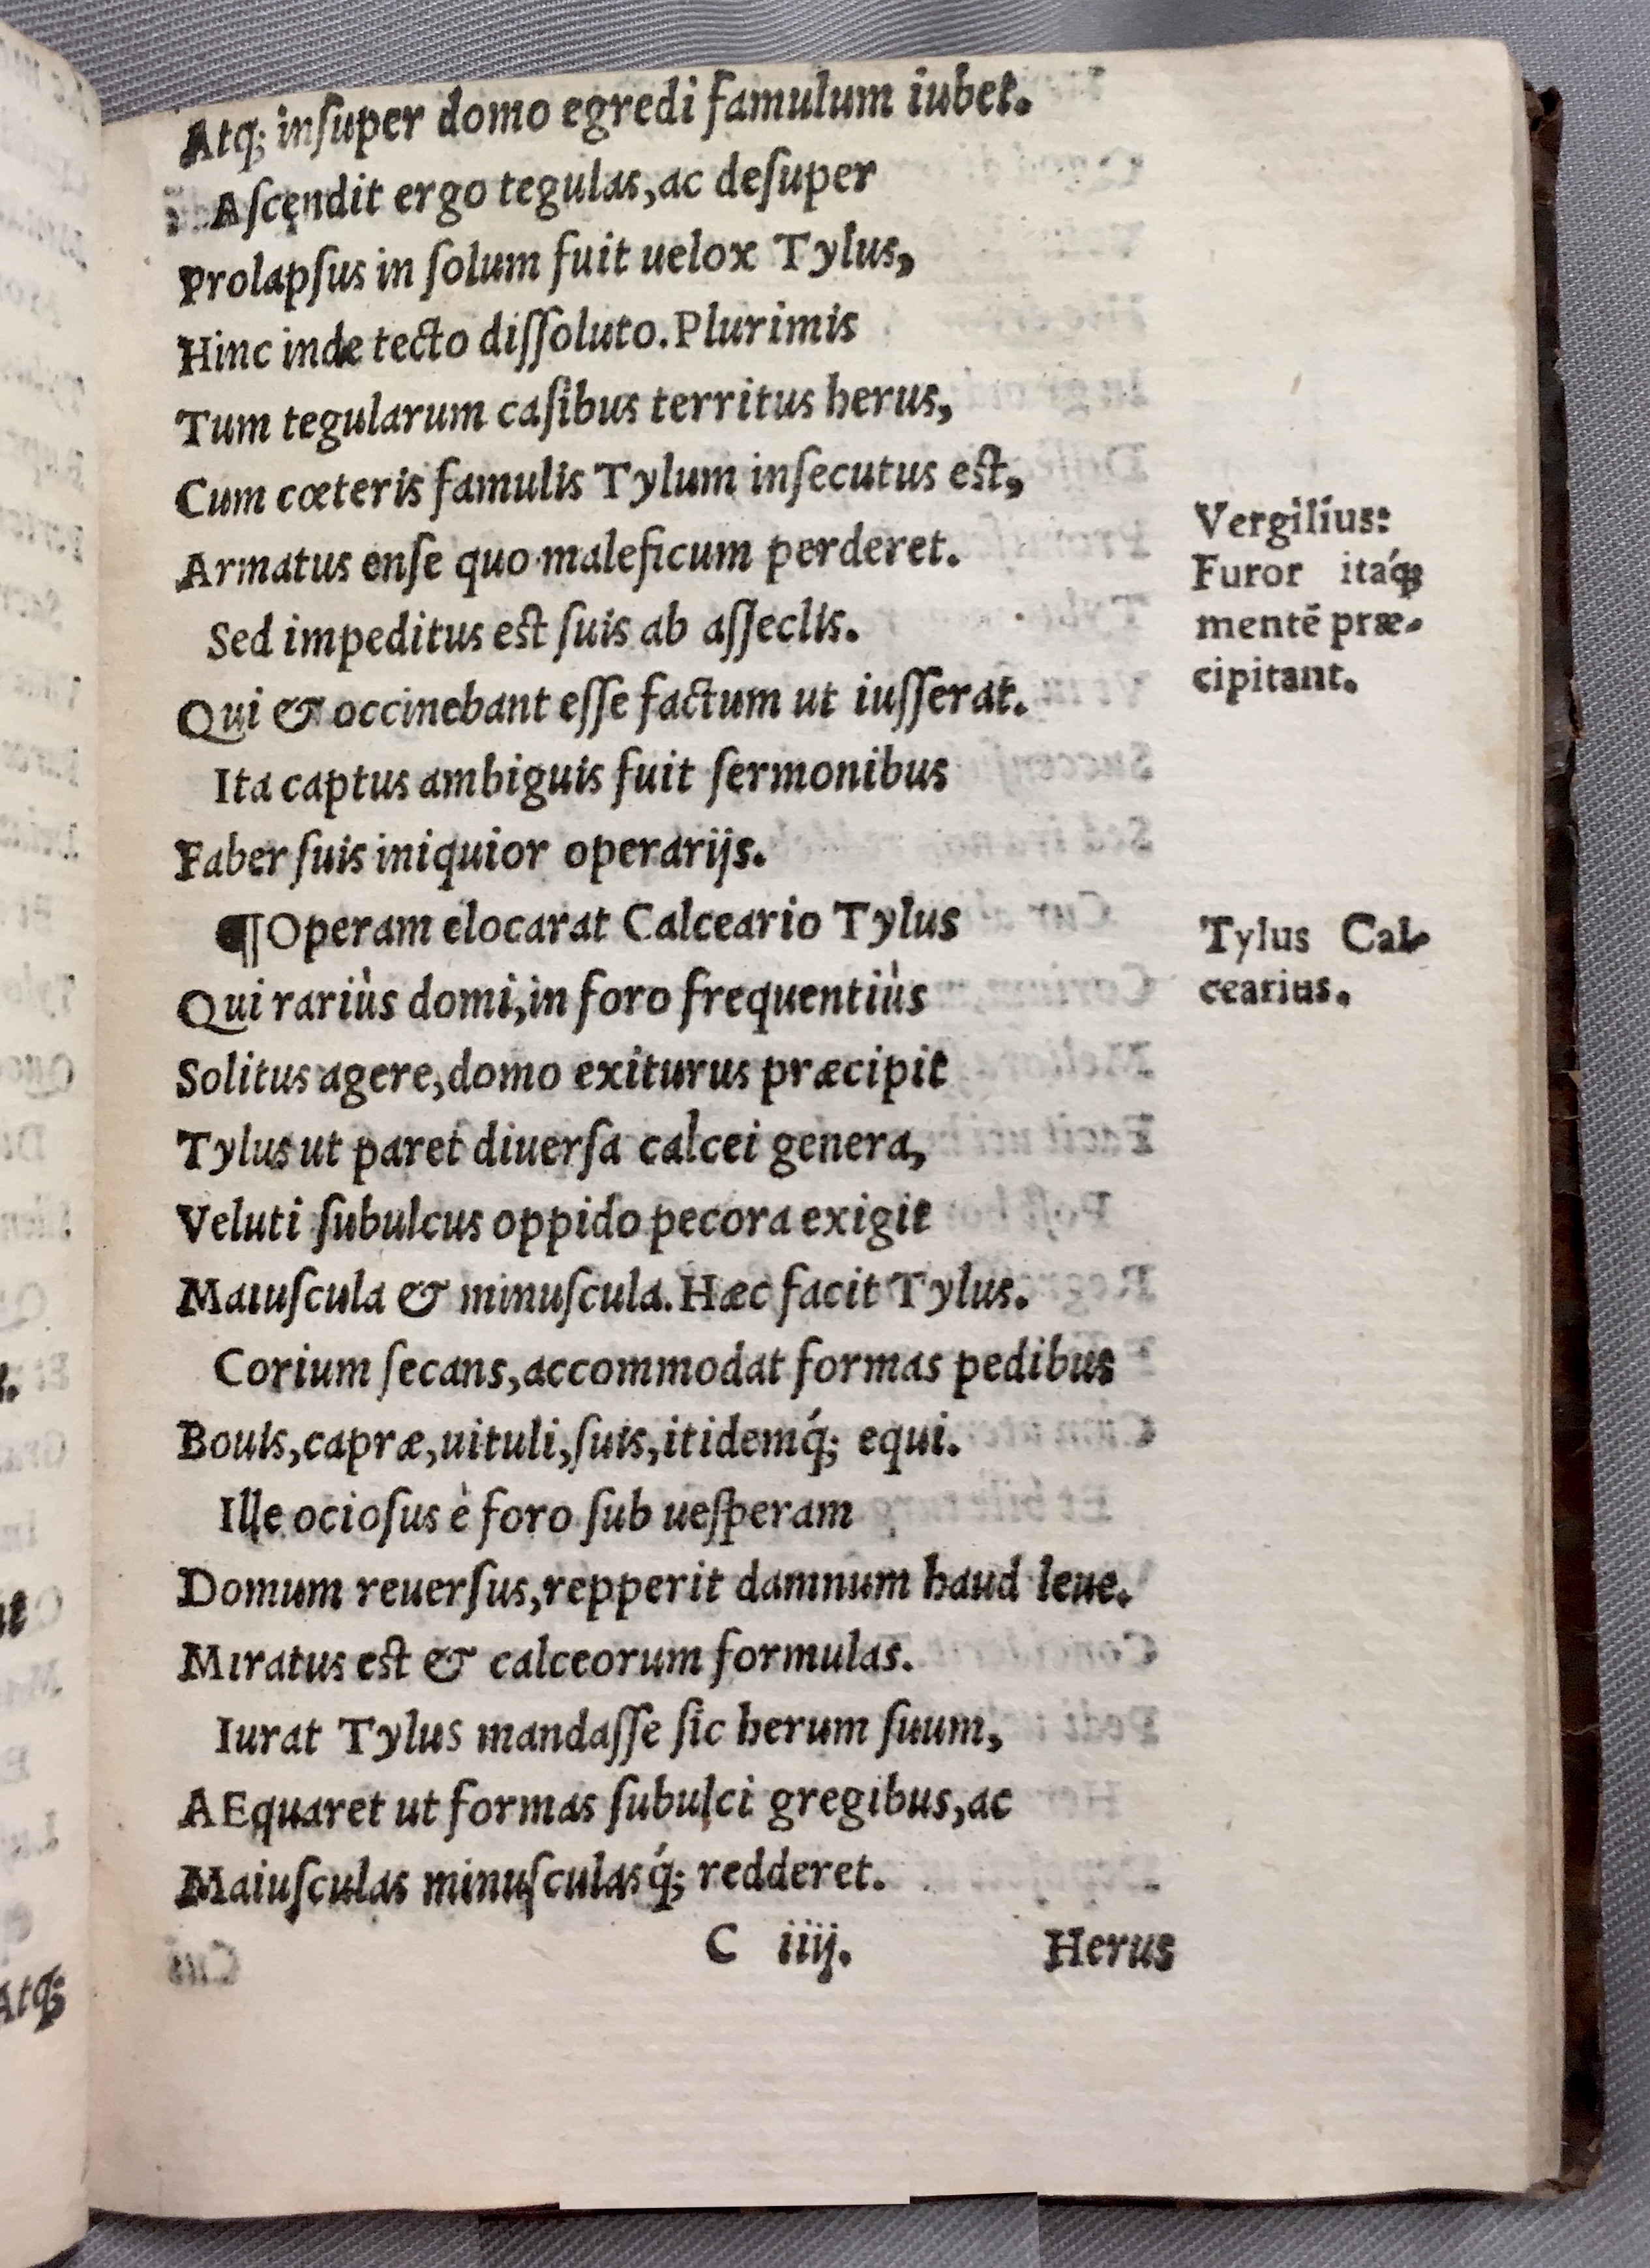 Atq; inſuper domo egredi famulum iubet.
Aſcendit ergo tegulas,ac deſuper
Prolapſus in ſolum fuit uelox Tylus,
Hinc inde tecto diſſoluto.Plurimis
Tum tegularum caſibus territus herus,
Cum cœteris famulis Tylum inſecutus eſt,
Armatus enſe quo maleficum perderet.
Sed impeditus eſt ſuis ab aſſeclis.
Qui & occinebant eſſe factum ut iuſſerat.
Ita captus ambiguis fuit ſermonibus
Faber ſuis iniquior operarijs.
¶Operam elocarat Calceario Tylus
Qui rariùs domi,in foro frequentiùs
Solitus agere,domo exiturus præcipit
Tylus ut paret diuerſa calcei genera,
Veluti ſubulcus oppido pecora exigit
Maiuſcula & minuſcula.Hæc facit Tylus.
Corium ſecans,accommodat formas pedibus
Bouis,capræ,uituli,ſuis,itidemq́; equi.
Ille ocioſus è foro ſub ueſperam
Domum reuerſus,repperit damnum haud leue.
Miratus eſt & calceorum formulas.
Iurat Tylus mandaſſe ſic herum ſuum,
AEquaret ut formas ſubulci gregibus,ac
Maiuſculas minuſculasq́; redderet.
C iiij. Herus
Vergilius:
Furor itáq;
mentē præ-
cipitant.
Tylus Cal-
cearius.
Atq;